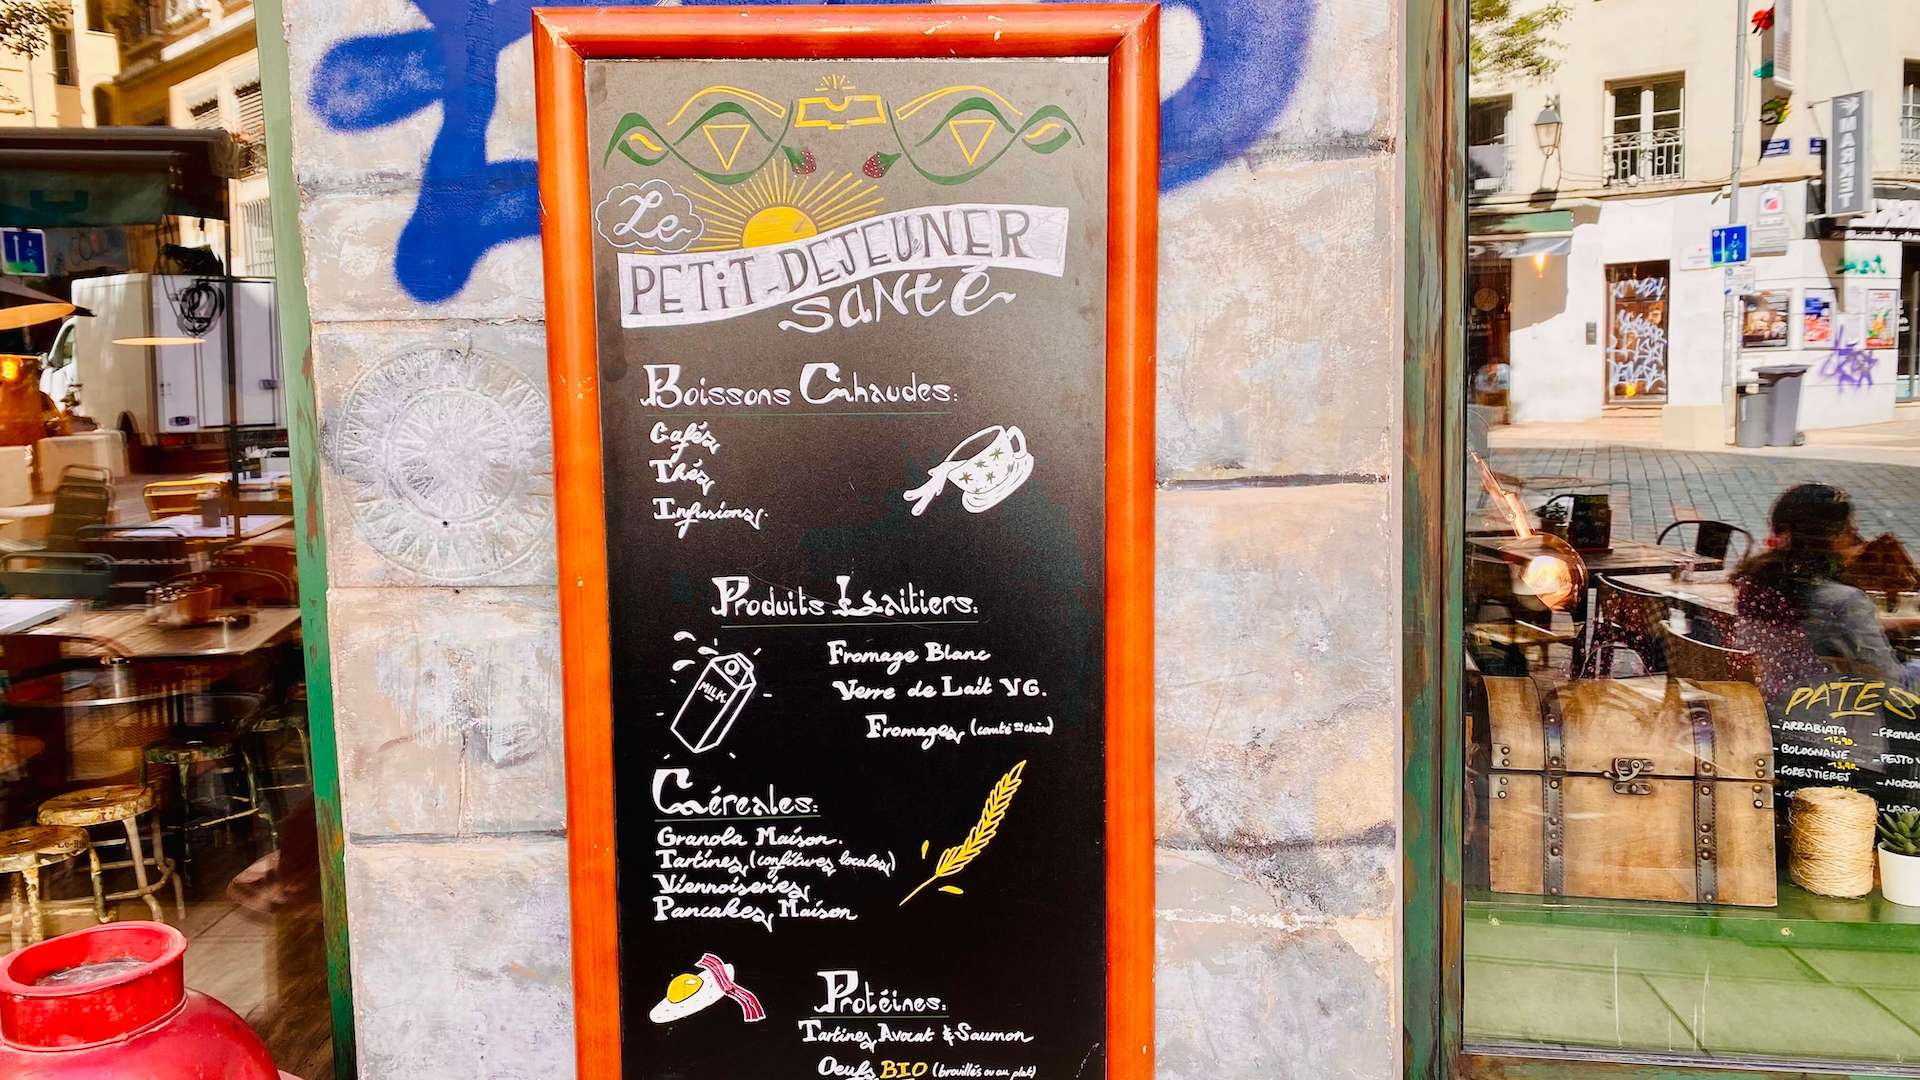 Le
PETIT-DEJEUNER
Santé
Boissons Chaudes:
Cafés
Thés
Infusions.
Produits Laitiers:
MILK
Fromage Blanc
Verre de Lait VG.
Fromages (comté
Céréales:
Granola Maison.
Tartines (confitures locales)
Viennoiseries
Pancakes Maison
Protéines:
Tartines Avocat & Saumon
Oeufs BIO (brouillés ou au plat)
MARKET
PATES
- ARRABIATA
- BOLOGNAISE
13,90.
- FORESTIERES
- PESTO